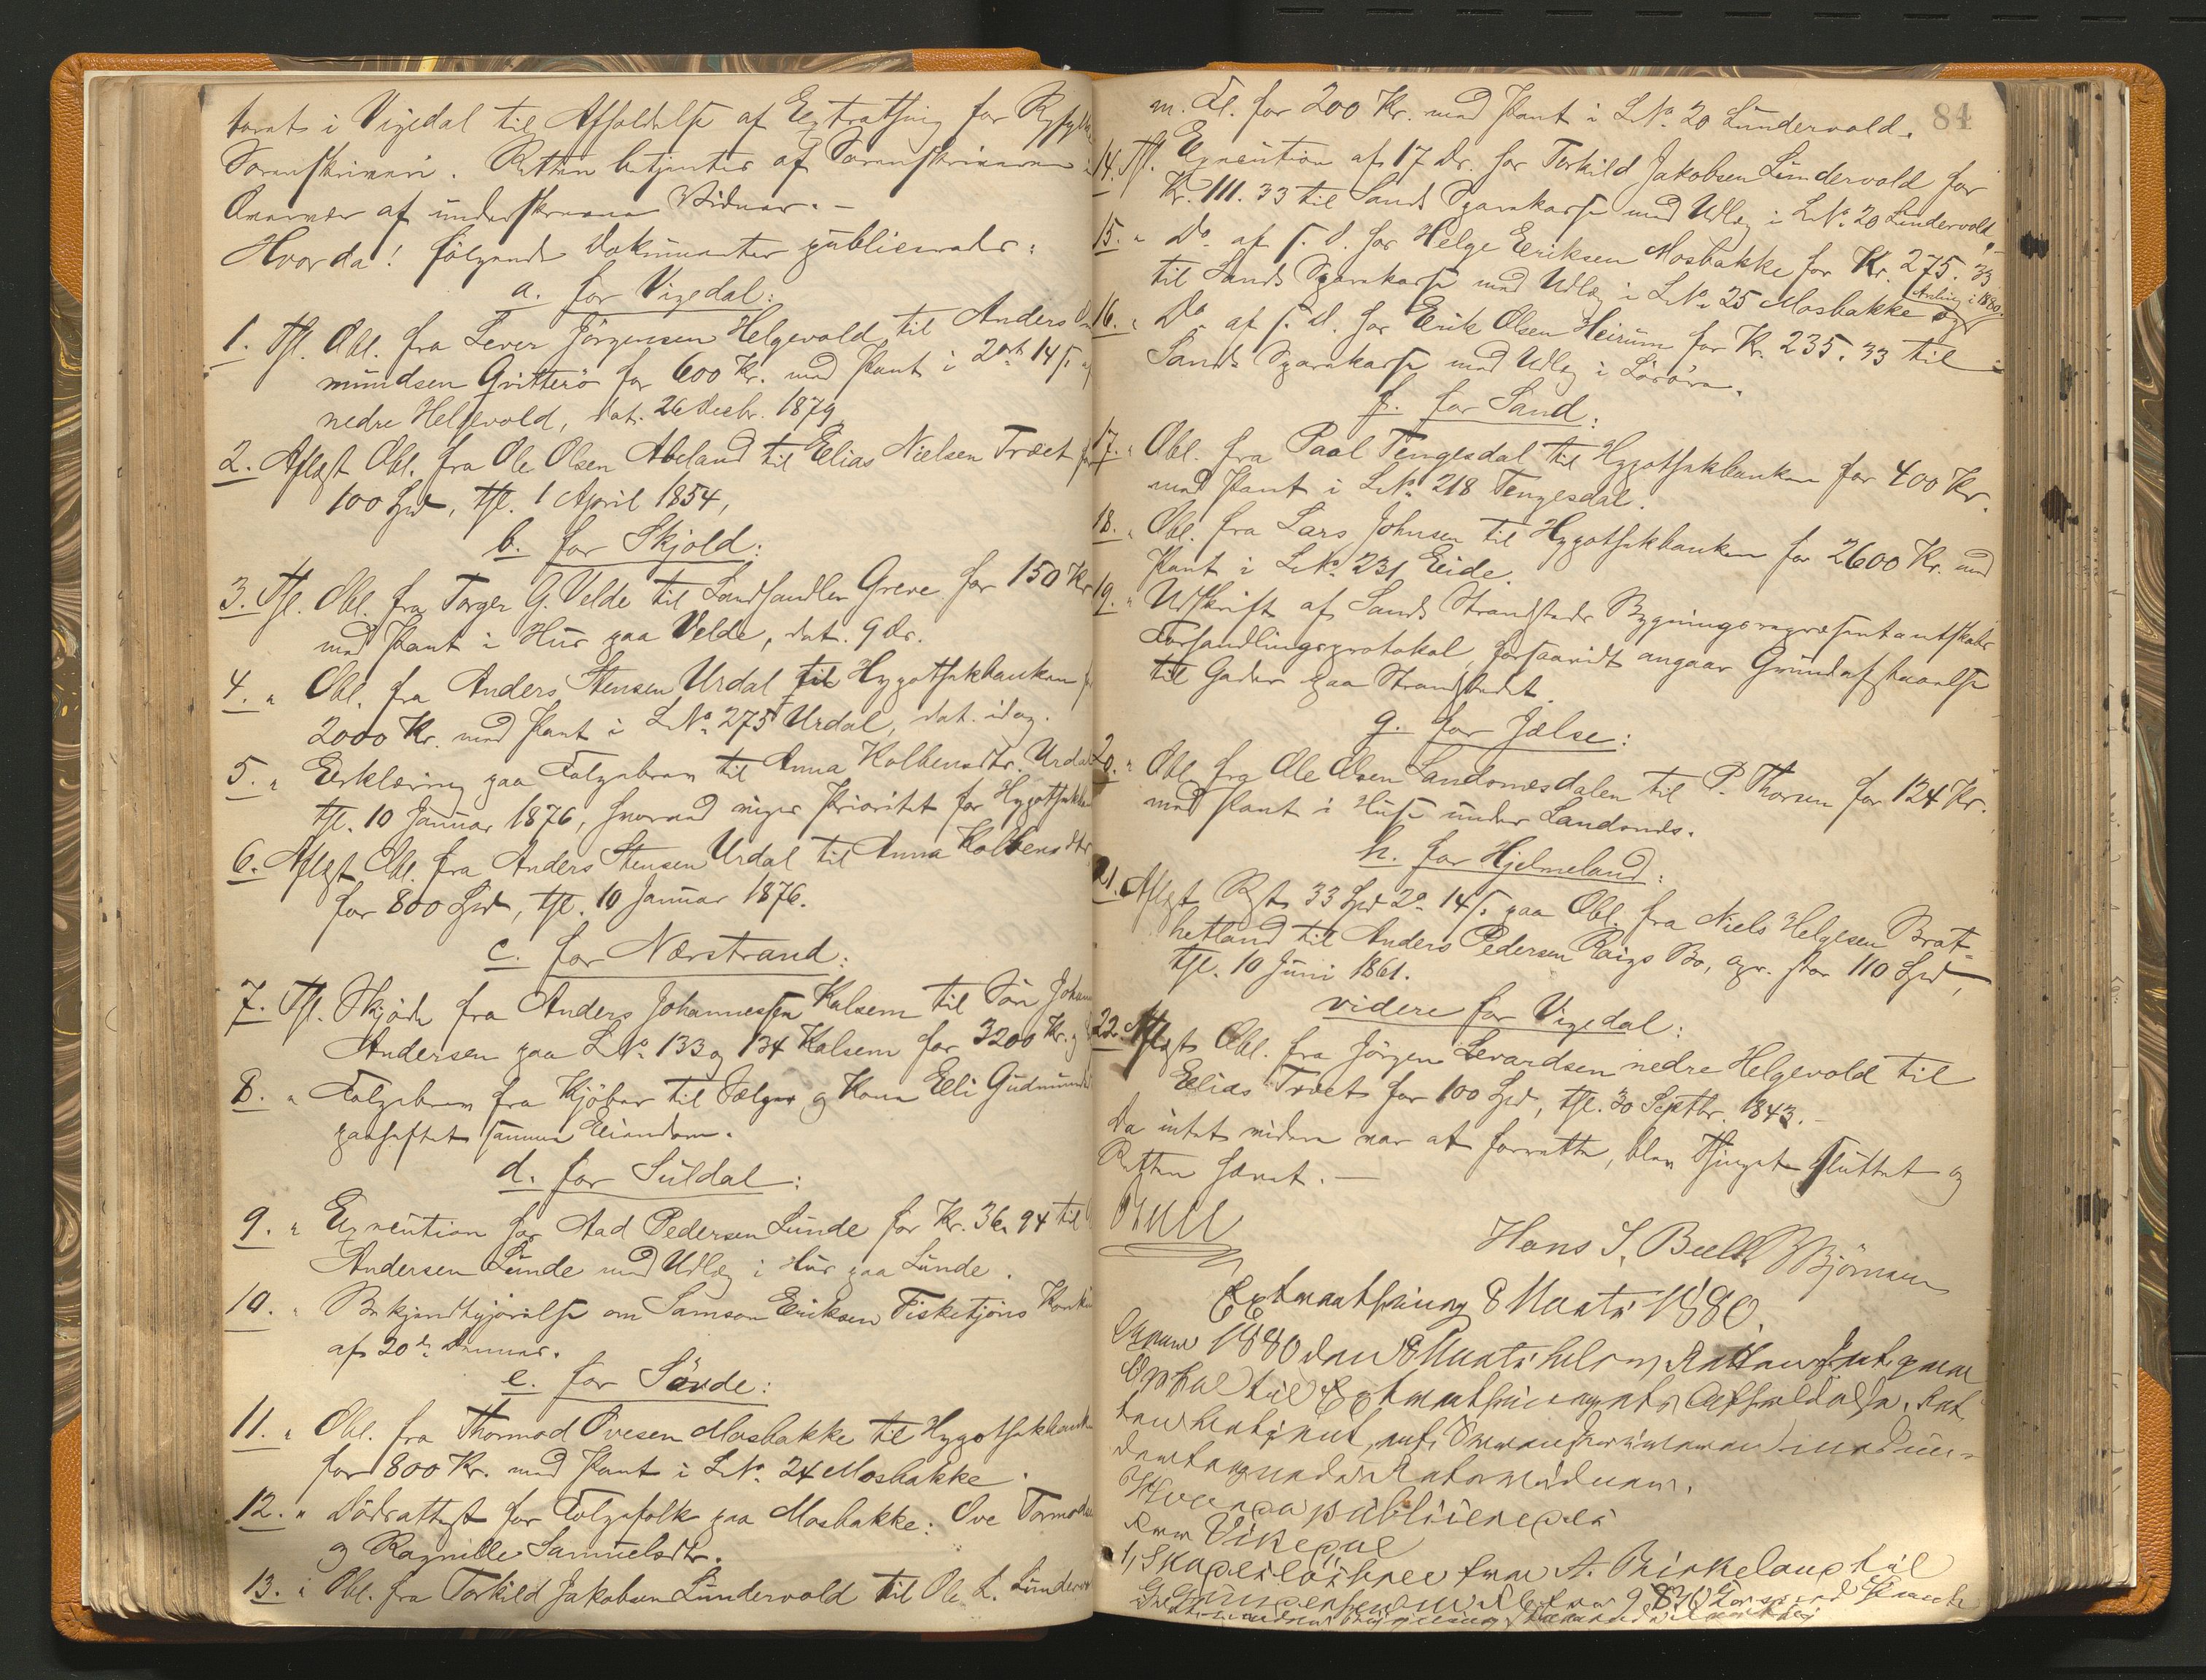 torat i Vigedal til Afholdelse af Extrathing for Ryfylke
Sorenskriveri. Retten betjentes af Sorenskriveren i
Overvær af underskrevne Vidner. —
Hvorda! følgende Dokumenter publiceredes:
a. for Vigedal:
1. Thl. Obl. fra Lever Jörgensen Helgevold til Anders
mundsen Qvitterö for 600 Kr. med Pant i 2 14 s. af
nedre Helgevold, dat. 26 Decbr. 1879
2. Aflæst Obl. fra Ole Olsen Abeland til Elias Nielsen Træet for
100 Spd, thl. 1 April 1854,
b. for Skjold:
3. Thl. Obl. fra Torger G. Velde til Landhandler Greve for 150 Kr
med Pant i Hus paa Velde, dat. 9 ds.
4. " Obl. fra Anders Stensen Urdal til Hypothekbanken for
2000 Kr. med Pant i LNo. 275 Urdal, dat. idag.
5. " Erklæring paa Folgebrev til Anna Kolbensdtr. Urdal
thl. 10 Januar 1876, hvorved viges Prioritet for Hypothekba
6. Aflæst Obl. fra Anders Stensen Urdal til Anna Kolbensdtr
for 800 Spd, thl. 10 Januar 1876.
c. for Nærstrand:
7. Thl. Skjöde fra Anders Johannessen Kalsem til Sön Johan
Andersen paa LNo. 133 og 134 Kalsem for 3200 Kr. og
8. " Folgebrev fra Kjöber til Sælger og Kone Elli Gudmunds
paaheftet samme Eiendom.
d. for Suldal:
9. " Execution hos Aad Pedersen Lunde for Kr. 36. 94 til
Andersen Lunde med Udlæg i Hus paa Lunde.
10. " Bekjendtgjörelse om Samson Eriksen Fisketjöns Konku
af 20de dennes.
e. for Sövde:
11. " Obl. fra Thormod Ovesen Mosbakke til Hypothekbank
for 800 Kr. med Pant i LNo. 24 Mosbakke.
12. " Dödsattest for Folgefolk paa Mosbakke: Ove Tormods
og Ragnille Samuelsdtr.
13. " Obl. fra Torkild Jakobsen Lundervold til Ole L. Lunderv
84
m. Fl. for 200 Kr. med Pant i LNo. 20 Lundervold.
14. Thl. Execution af 17 ds. hos Torkild Jakobsen Lundervold for
Kr. 111. 33 til Sands Sparekasse med Udlæg i LNo. 20 Lundervold.
15. " Do. af s. d. hos Helge Eriksen Mosbakke for Kr. 275. 33
til Sands Sparekasse med Udlæg i LNo. 25 Mosbakke og
16. " Do. af s. d. hos Erik Olsen Heirum for Kr. 235. 33 til
Sands Sparekasse med Udlæg i Lösöre.
f. for Sand:
17. " Obl. fra Paal Tengesdal til Hypothekbanken for 400 Kr.
med Pant i LNo. 218 Tengesdal.
18. " Obl. fra Lars Johnsen til Hypothekbanken for 2600 Kr. med
Pant i LNo. 231 Eide.
19. " Udskrift af Sands Strandsteds Bygningsrepræsentantskabs
Forhandlingsprotokol, forsaavidt angaar Grundafstaaelse
til Gader paa Strandstedet.
g. for Jælse:
20. " Obl. fra Ole Olsen Landsnesdalen til P. Thorsen for 124 Kr.
med Pant i Huse under Landsnes.
h. for Hjelmeland:
21. Aflæst Rest 33 Spd 2 14 s. paa Obl. fra Niels Helgesen Brat-
hetland til Anders Pedersen Raigs Bo, opr. stor 110 Spd,
thl. 10 Juni 1861.
videre for Vigedal:
22. Aflæst Obl. fra Jörgen Levardsen nedre Helgevold til
Elias Træet for 100 Spd, thl. 30 Septbr. 1843. —
Da intet videre var at forrette, blev Thinget sluttet og
Retten hævet. —
Bull
Hans S. Bull. Björnsen
Extrathing 8 Marts 1880.
1880 den 8 Marts Retten
til Extrathingets Afholdelse. Ret
ten betjent af Sorenskriveren med un-
dertegnede Retsvidner.
Hvorpaa publiceredes
for Vikedal
1, Skadeslösbrev fra A. Birkeland til